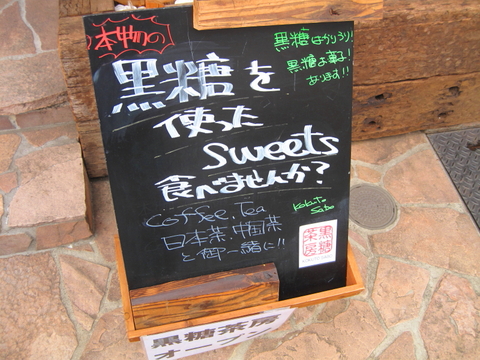 本物の
黒糖を
使った
sweets
食べませんか?
黒糖はかりうり!
黒糖お菓子!
あります!!
Coffee, Tea
日本茶、中国茶
と御一緒に!!
Kokuto
Sabo
黒糖
茶房
黒糖茶房
オープン